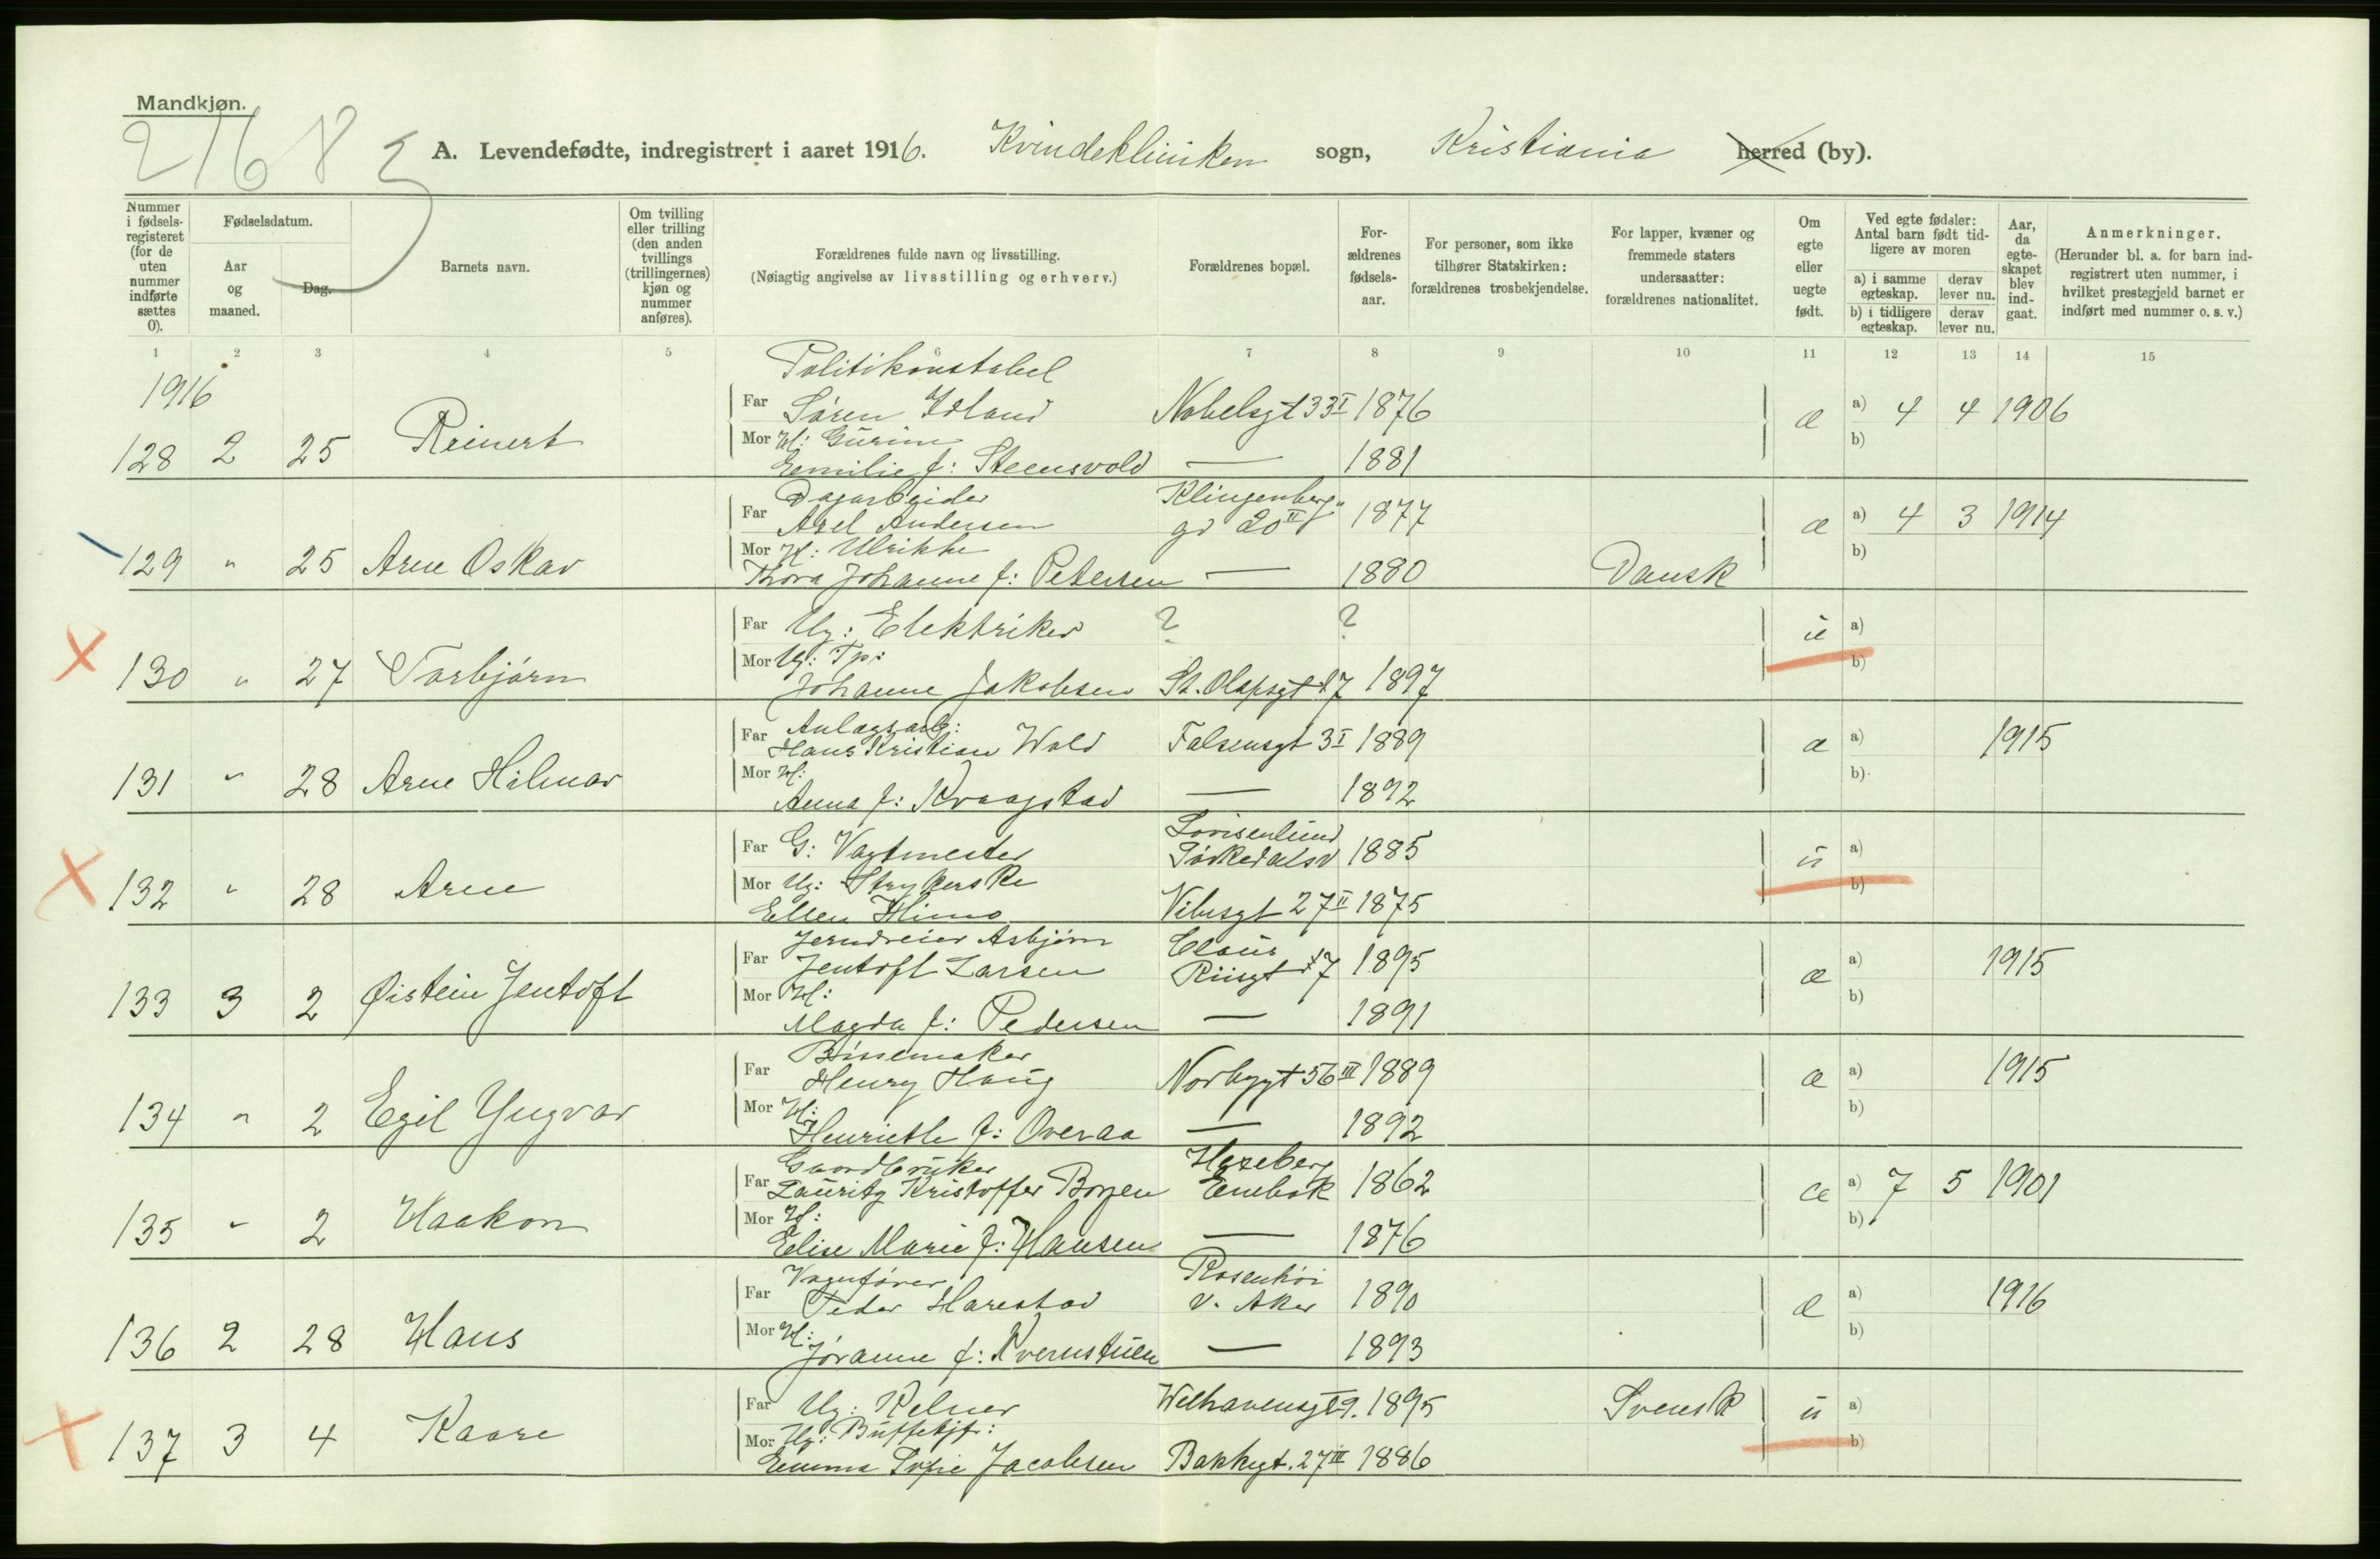 Mandkjøn.
21685
A. Levendefødte, indregistrert i aaret 1916. Kvindekliniken sogn, Kristiania herred (by).
Nummer i fødselsregisteret (for de uten nummer indførte sættes 0).
Fødselsdatum.
Aar og maaned.
Dag.
Barnets navn.
Om tvilling eller trilling (den anden tvillings (trillingernes) kjøn og nummer anføres).
Forældrenes fulde navn og livsstilling.
(Nøiagtig angivelse av livsstilling og erhverv.)
Forældrenes bopæl.
Forældrenes fødselsaar.
For personer, som ikke tilhører Statskirken: forældrenes trosbekjendelse.
For lapper, kvæner og fremmede staters undersaatter: forældrenes nationalitet.
Om egte eller uegte født.
Ved egte fødsler: Antal barn født tidligere av moren
a) i samme egteskap. derav lever nu.
b) i tidligere egteskap. derav lever nu.
Aar, da egteskapet blev indgaat.
Anmerkninger.
(Herunder bl. a. for barn indregistrert uten nummer, i hvilket prestegjeld barnet er indført med nummer o. s. v.)
1 2 3 4 5 6 7 8 9 10 11 12 13 14 15
1916
Politikonstabel
Far Søren Idland Nobelsgt 33 I 1876 æ a) 4 4 1906
Mor H: Gurine b)
128 2 25 Reinert Emilie f: Steensvold — 1881
Dagarbeider Klingenberg
Far Axel Andersen gd 20 II 1877 æ a) 4 3 1914
Mor H: Ulrikke b)
129 " 25 Arne Oskar Thora Johanne f: Petersen — 1880 Dansk
Far Ug: Elektriker ? ? u a)
Mor Ug: Tp: b)
130 " 27 Torbjørn Johanne Jakobsen St. Olafsgt 17 1897
Anlagsarb:
Far Hans Kristian Wold Falsensgt 3 I 1889 æ a) 1915
Mor H: b)
131 " 28 Arne Hilmar Anna f: Kraagstad — 1892
Lovisenlund
Far G: Vagtmester Sørkedalsv 1885 u a)
Mor Ug: Strykerske b)
132 " 28 Arne Ellen Himo Vibesgt 27 II 1875
Jerndreier Asbjørn Claus
Far Jentoft Larsen Riisgt 17 1895 æ a) 1915
Mor H: b)
133 3 2 Øistein Jentoft Magda f: Pedersen — 1891
Bøssemaker
Far Henry Haug Norbygt 56 III 1889 æ a) 1915
Mor H: b)
134 " 2 Egil Yngvar Henriette f: Overaa — 1892
Gaardbruker Hazeberg
Far Lauritz Kristoffer Borgen Enebak 1862 æ a) 7 5 1901
Mor H: b)
135 " 2 Haakon Elise Marie f: Hansen — 1876
Vognfører Rosenhøi
Far Peder Harestad V. Aker 1890 æ a) 1916
Mor H: b)
136 2 28 Hans Jøranne f: Kvernstuen — 1893
Far Ug: Kelner Welhavensgt 9. 1895 Svensk u a)
Mor Ug: Buffetjfr: b)
137 3 4 Kaare Emma Sofie Jacobsen Bakkegt. 27 III 1886